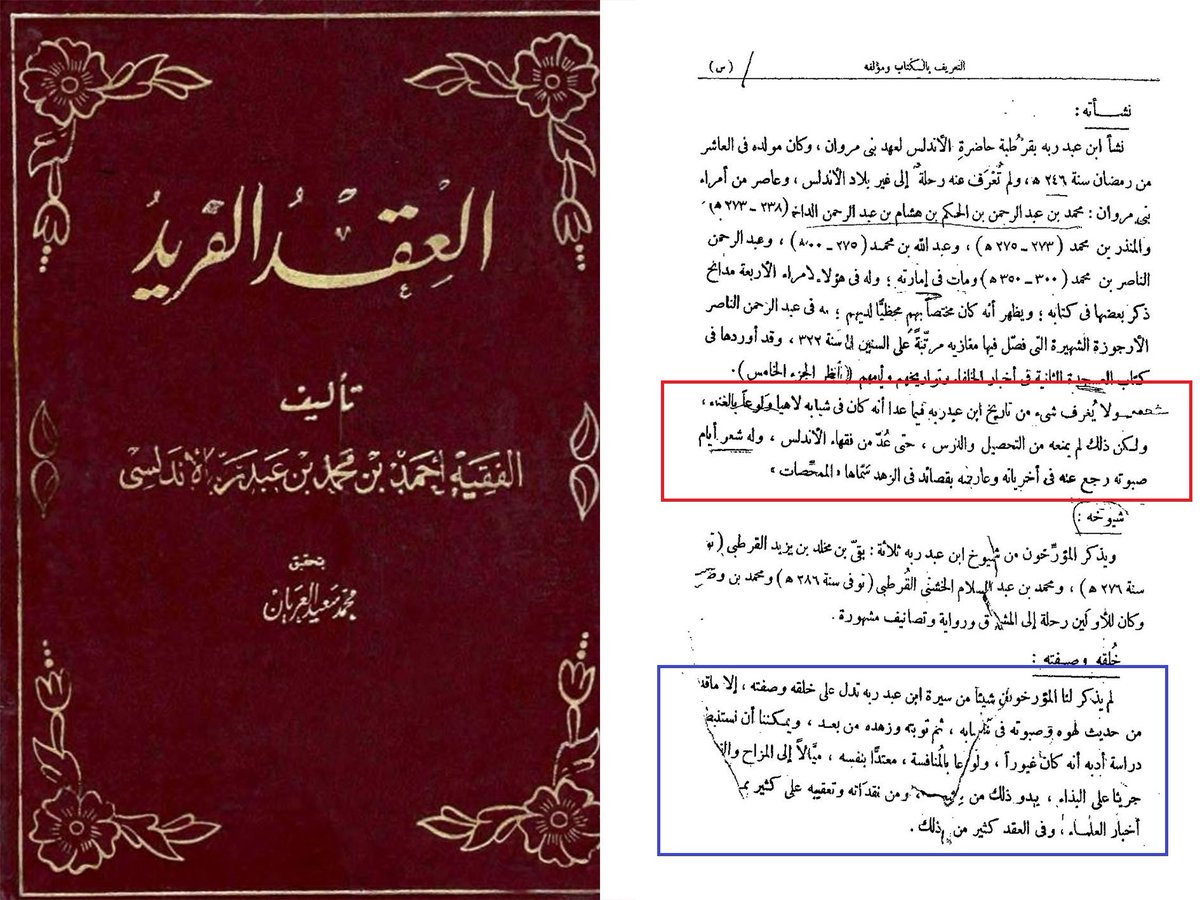 العِقدُ الفريدُ
تأليف
الفقيه أحمد بن محمد بن عبد ربه الأندلسي
بتحقيق
محمد سعيد العريان
التعريف بالكتاب ومؤلفه
(س)
نشأته :
نشأ ابن عبد ربه بقرطُبة حاضرةِ الأندلس لعهد بنى مروان ، وكان مولده فى العاشر
من رمضان سنة ٢٤٦ ه ، ولم تُعْرَف عنه رحلة إلى غير بلاد الأندلس ، وعاصر من أمراء
بنى مروان : محمد بن عبد الرحمن بن الحكم بن هشام بن عبد الرحمن (٢٣٨ – ٢٧٣ ه)
والمنذر بن محمد (٢٧٣ – ٢٧٥ ه) ، وعبد الله بن محمد (٢٧٥ – ٣٠٠ ه) ، وعبد الرحمن
الناصر بن محمد (٣٠٠ – ٣٥٠ ه) ومات فى إمارته ؛ وله فى هؤلاء الأمراء الأربعة مدائح
ذكر بعضها فى كتابه ؛ ويظهر أنه كان مختصاً بهم محظيًّا لديهم ؛ وله فى عبد الرحمن الناصر
الأرجوزة الشهيرة التى فصّل فيها مغازيه مرتّبةً على السنين إلى سنة ٣٢٢ ، وقد أوردها فى
كتاب العسجدة الثانية فى أخبار الخلفاء وتواريخهم وأيامهم (انظر الجزء الخامس) .
ولا يُعرف شىء من تاريخ ابن عبد ربه فيما عدا أنه كان فى شبابه لاهيا ولوعاً بالغناء ،
ولكن ذلك لم يمنعه من التحصيل والدرس ، حتى عُدّ من فقهاء الأندلس ، وله شعر أيام
صبوته رجع عنه فى أخرياته وعارضه بقصائد فى الزهد سمّاها «الممحّصات»
شيوخه :
ويذكر المؤرّخون من شيوخ ابن عبد ربه ثلاثة : بقىّ بن مخلد بن يزيد القرطبى
سنة ٢٧٦ ه) ، ومحمد بن عبد السلام الخشنى القُرطبى (توفى سنة ٢٨٦ ه) ومحمد بن وضاح
وكان للأولَين رحلة إلى المشرق ورواية وتصانيف مشهورة .
خُلقه وصفته :
لم يذكر لنا المؤرخون شيئاً من سيرة ابن عبد ربه تدل على خلقه وصفته ، إلا ما
من حديث لهوه وصبوته فى شبابه ، ثم توبته وزهده من بعد ، ويمكننا أن نستنبط
دراسة أدبه أنه كان غيوراً ، ولوعا بالمُنافسة ، معتدًّا بنفسه ، ميَّالاً إلى المزاح
جريئا على البذاء ، يبدو ذلك من ، ومن نقداته وتعقيبه على كثير
أخبار العلماء ، وفى العقد كثير من ذلك .